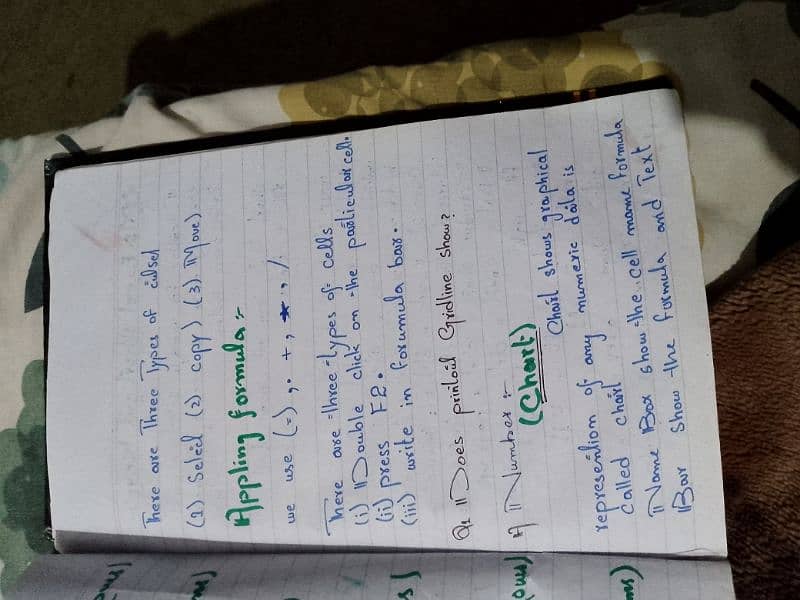 There are Three Types of culsel
(1) Select (2) copy) (3) Move)
Appling formula:-
we use (=), . +, *, /.
There are three types of cells
(i) Double click on the particular cell.
(ii) press F2.
(iii) write in forumula bar.
Q:- Does printout Gridline show?
A) Number:-
(Chart)
Chart shows graphical
represention of any numeric data is
called chart
Name Box show the cell mame formula
Bar show the formula and Text